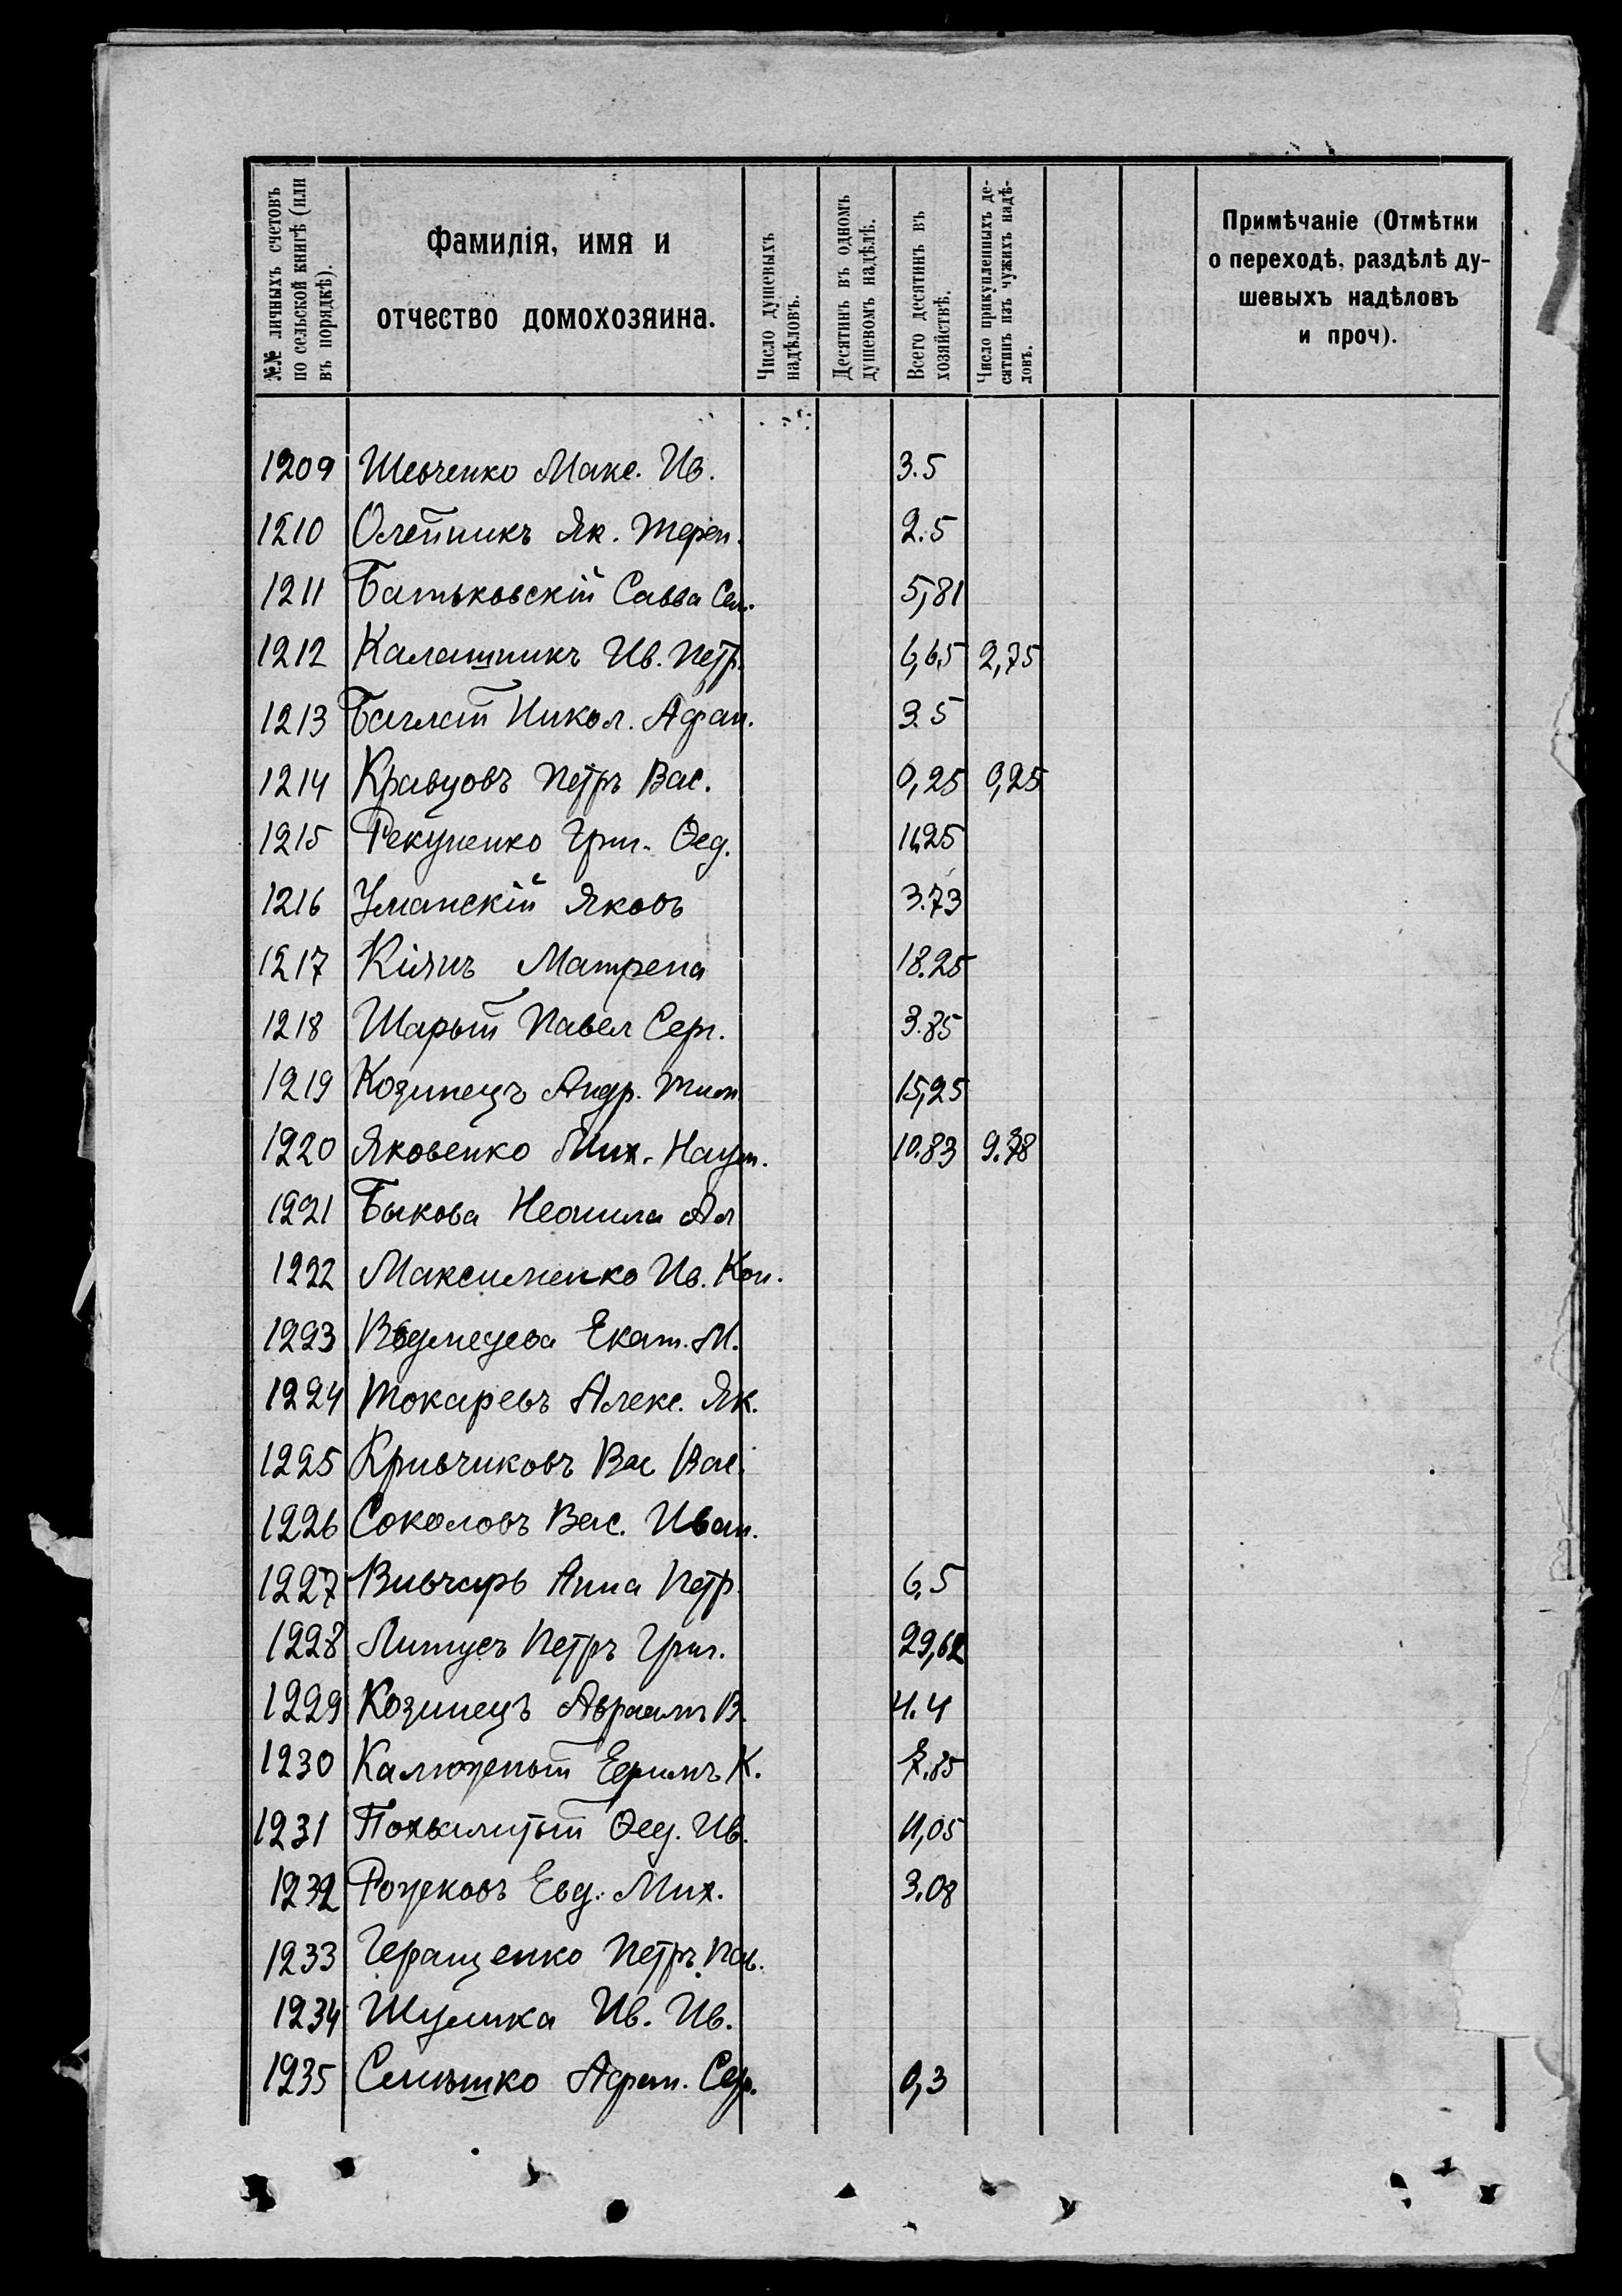 №№ личныхъ счетовъ по сельской книгѣ (или въ порядкѣ).
Фамилія, имя и отчество домохозяина.
Число душевыхъ надѣловъ.
Десятинъ въ одномъ душевомъ надѣлѣ.
Всего десятинъ въ хозяйствѣ.
Число прикупленныхъ десятинъ изъ чужихъ надѣловъ.
Примѣчаніе (Отмѣтки о переходѣ, раздѣлѣ душевыхъ надѣловъ и проч).
1209 Шевченко Макс. Ив. 3.5
1210 Олейникъ Як. Терен. 2.5
1211 Батьковскій Савва Сем. 5,81
1212 Калашникъ Ив. Петр. 6,65 2,75
1213 Баглай Никол. Афан. 3.5
1214 Кравцовъ Петръ Вас. 0,25 0,25
1215 Рекуненко Григ. Ѳед. 11,25
1216 Уманскій Яковъ 3.73
1217 Кіянъ Матрена 18.25
1218 Шарый Павел Серг. 3.85
1219 Козинецъ Андр. Тим. 15,25
1220 Яковенко Мих. Наум. 10.83
1221 Быкова Неонила Ал
1222 Максименко Ив. Кон.
1223 Екат. М.
1224 Токаревъ Алекс. Як.
1225 Кривчиковъ Вас Вас.
1226 Соколовъ Вас. Иван.
1227 Вивчарь Анна Петр. 6,5
1228 Литусъ Петръ Григ. 29,62
1229 Козинецъ Авраамъ В. 4.4
1230 Калюжный Ефимъ К.
1231 Похвалитый Ѳед. Ив. 4,05
1232 Рожковъ Евд. Мих. 3,08
1233 Геращенко Петръ Пав.
1234 Шулика Ив. Ив.
1235 Семышко Афан. Сер. 0,3